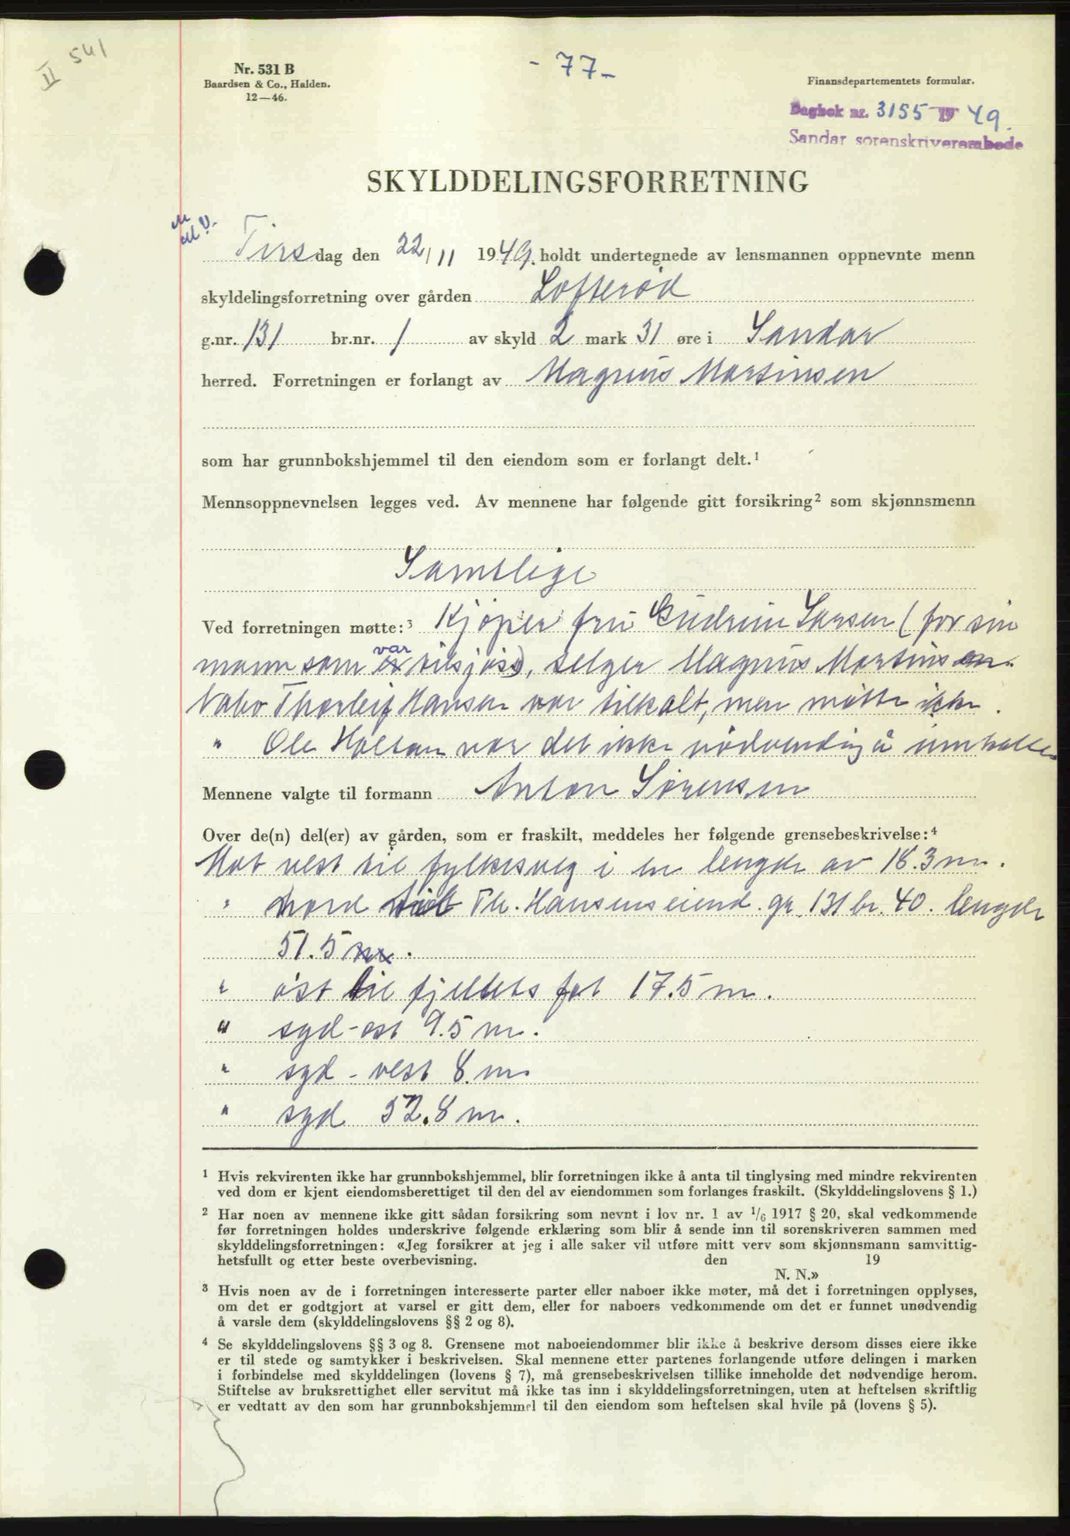 II 541
Nr. 531 B
Baardsen & Co., Halden.
12—46.
- 77 -
Finansdepartementets formular.
Dagbok nr. 3155 19 49.
Sandar sorenskriverembede
SKYLDDELINGSFORRETNING
Tirsdag den 22/11 1949. holdt undertegnede av lensmannen oppnevnte menn
skyldelingsforretning over gården Lofterød
g.nr. 131 br.nr. 1 av skyld 2 mark 31 øre i Sandar
herred. Forretningen er forlangt av Magnus Martinsen
som har grunnbokshjemmel til den eiendom som er forlangt delt.¹
Mennsoppnevnelsen legges ved. Av mennene har følgende gitt forsikring² som skjønnsmenn
Samtlige
Ved forretningen møtte:³ Kjøper fru Gudrun Larsen (for sin
mann som var tilsjøs), selger Magnus Martinsen.
Nabo Thorleif Hansen var tilkalt, men møtte ikke.
" Ole Holtan var det ikke nødvendig å
Mennene valgte til formann Anton Sørensen
Over de(n) del(er) av gården, som er fraskilt, meddeles her følgende grensebeskrivelse:⁴
Mot vest til fylkesveg i en lengde av 18.3 m.
" nord til Th. Hansens eiend. gr 131 br. 40. lengde
51.5 m.
" øst til fjellets fot 17.5 m.
" syd-ost 9.5 m.
" syd - vest 8 m
" syd 52.8 m.
¹ Hvis rekvirenten ikke har grunnbokshjemmel, blir forretningen ikke å anta til tinglysing med mindre rekvirenten
ved dom er kjent eiendomsberettiget til den del av eiendommen som forlanges fraskilt. (Skylddelingslovens § 1.)
² Har noen av mennene ikke gitt sådan forsikring som nevnt i lov nr. 1 av 1/6 1917 § 20, skal vedkommende
før forretningen holdes underskrive følgende erklæring som blir å sende inn til sorenskriveren sammen med
skylddelingsforretningen: «Jeg forsikrer at jeg i alle saker vil utføre mitt verv som skjønnsmann samvittig-
hetsfullt og etter beste overbevisning. den 19
N. N.»
³ Hvis noen av de i forretningen interesserte parter eller naboer ikke møter, må det i forretningen opplyses,
om det er godtgjort at varsel er gitt dem, eller for naboers vedkommende om det er funnet unødvendig
å varsle dem (skylddelingslovens §§ 2 og 8).
⁴ Se skylddelingslovens §§ 3 og 8. Grensene mot naboeiendommer blir ikke å beskrive dersom disses eiere ikke
er til stede og samtykker i beskrivelsen. Skal mennene etter partenes forlangende utføre delingen i marken
i forbindelse med skylddelingen (lovens § 7), må grensebeskrivelsen tillike inneholde det nødvendige herom.
Stiftelse av bruksrettighet eller servitut må ikke tas inn i skylddelingsforretningen, uten at heftelsen skriftlig
er vedtatt av den som har grunnbokshjemmel til den eiendom som heftelsen skal hvile på (lovens § 5).